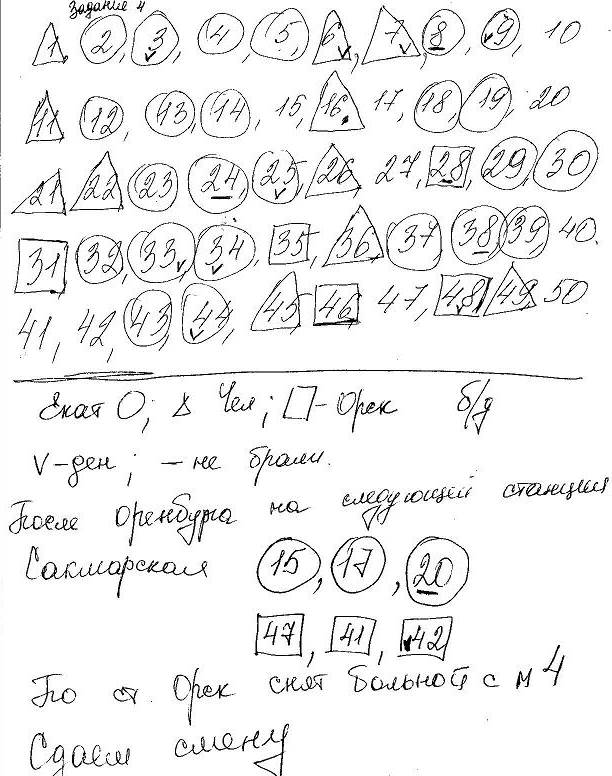 Задание 4
1, 2, 3, 4, 5, 6, 7, 8, 9, 10
11, 12, 13, 14, 15, 16, 17, 18, 19, 20
21, 22, 23, 24, 25, 26, 27, 28, 29, 30
31, 32, 33, 34, 35, 36, 37, 38, 39, 40.
41, 42, 43, 44, 45, 46, 47, 48, 49, 50
Екат О; Δ Чел; □-Орск б/д
V-ден; – не брали.
После Оренбурга на следующей станции
Сакмарская 15, 17, 20
47, 41, 42
По ст. Орск снят больной с м 4
Сдаем смену